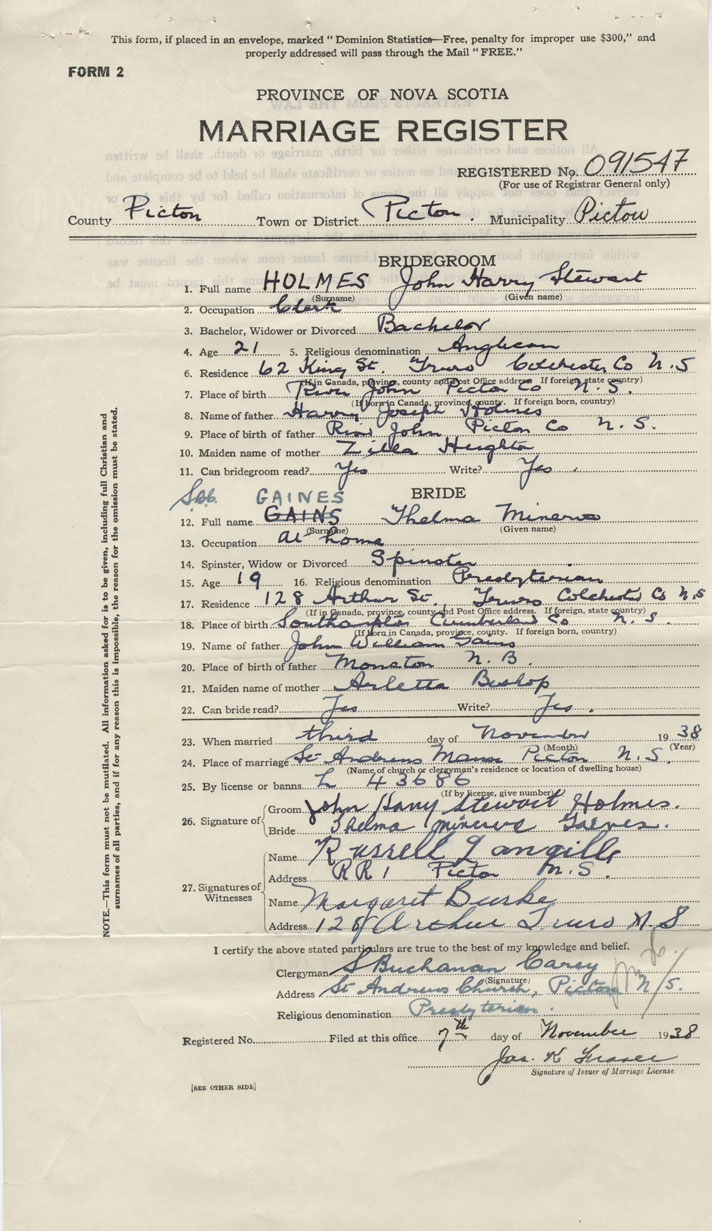 This form, if placed in an envelope, marked "Dominion Statistics—Free, penalty for improper use $300," and
properly addressed will pass through the Mail "FREE."
FORM 2
PROVINCE OF NOVA SCOTIA
MARRIAGE REGISTER
REGISTERED No. 091547
(For use of Registrar General only)
County Pictou Town or District Pictou. Municipality Pictou
BRIDEGROOM
1. Full name HOLMES John Harry Stewart
(Surname) (Given name)
2. Occupation Clerk
3. Bachelor, Widower or Divorced Bachelor
4. Age 21 5. Religious denomination Anglican
6. Residence 62 King St. Truro Colchester Co N.S
(If in Canada, province, county and Post Office address. If foreign, state country)
7. Place of birth River John Pictou Co N.S.
(If born in Canada, province, county. If foreign born, country)
8. Name of father Harry Joseph Holmes
9. Place of birth of father River John Pictou Co N.S.
10. Maiden name of mother Zilla Heighton
11. Can bridegroom read? Yes Write? Yes.
BRIDE
GAINES
12. Full name GAINS Thelma Minerva
(Surname) (Given name)
13. Occupation at home
14. Spinster, Widow or Divorced Spinster
15. Age 19 16. Religious denomination Presbyterian
17. Residence 128 Arthur St. Truro Colchester Co N.S
(If in Canada, province, county and Post Office address. If foreign, state country)
18. Place of birth Southampton Cumberland Co N.S.
(If born in Canada, province, county. If foreign born, country)
19. Name of father John William Gains
20. Place of birth of father Moncton N.B.
21. Maiden name of mother Arletta Bishop
22. Can bride read? Yes Write? Yes.
23. When married third day of November 1938
(Month) (Year)
24. Place of marriage St Andrews Manse Pictou N.S.
(Name of church or clergyman's residence or location of dwelling house)
25. By license or banns L 43686
(If by license, give number)
26. Signature of Groom John Harry Stewart Holmes.
Bride Thelma Minerva Gaines.
27. Signatures of Witnesses
Name Russell Langille
Address RR1 Pictou N.S.
Name Margaret Burke
Address 128 Arthur Truro N.S
I certify the above stated particulars are true to the best of my knowledge and belief.
Clergyman S Buchanan Carey
(Signature)
Address St Andrews Church, Pictou N.S.
Religious denomination Presbyterian.
Registered No. Filed at this office 7th day of November 1938
Jas. K Fraser
Signature of Issuer of Marriage License.
[SEE OTHER SIDE]
NOTE.—This form must not be mutilated. All information asked for is to be given, including full Christian and
surnames of all parties, and if for any reason this is impossible, the reason for the omission must be stated.